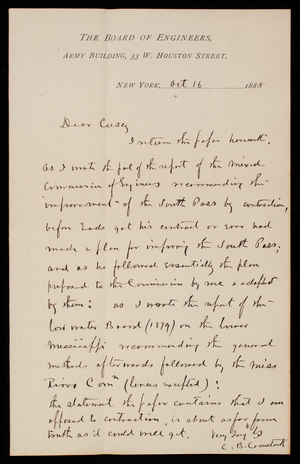 THE BOARD OF ENGINEERS,
ARMY BUILDING, 33 W. HOUSTON STREET,
NEW YORK, Oct 16 1888
Dear Casey
I return the paper herewith.
As I wrote the part of the report of the mixed
Commission of Engineers recommending the
improvement of the South Pass by contraction,
before Eads got his contract or ever had
made a plan for improving the South Pass;
and as he followed essentially the plan
proposed to the Commission by me & adopted
by them: as I wrote the report of the
Low water Board (1879) on the lower
Mississippi recommending the general
methods afterwards followed by the Miss
River Comn (levees excepted):
the statement the paper contains that I am
opposed to contraction, is about as far from
truth as it could well get. Very truly
C. B. Comstock